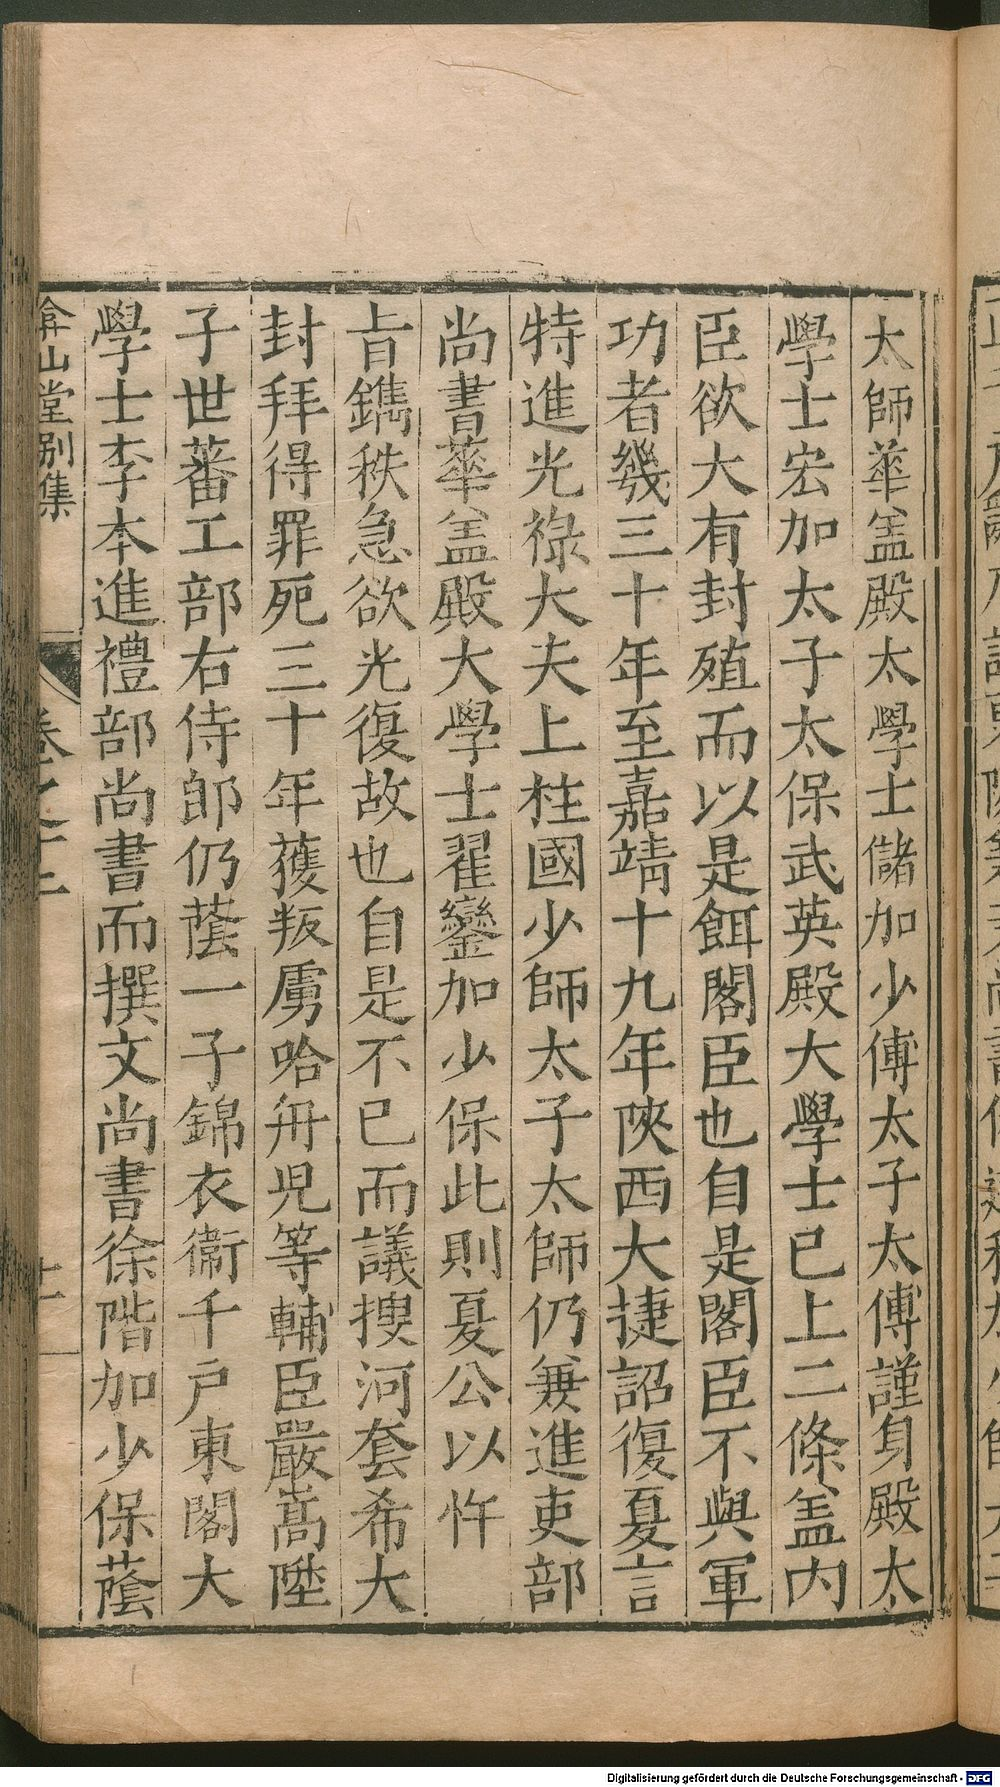 太師華盖殿太學士儲加少傅太子太傅謹身殿太
學士宏加太子太保武英殿大學士已上二條盖内
臣欲大有封殖而以是餌閣臣也自是閣臣不與軍
功者幾三十年至嘉靖十九年陝西大捷詔復夏言
特進光祿大夫上柱國少師太子太師仍兼進吏部
尚書華盖殿大學士翟鑾加少保此則夏公以忤
旨鐫秩急欲光復故也自是不已而議搜河套希大
封拜得罪死三十年獲叛虜哈舟児等輔臣嚴嵩陞
子世蕃工部右侍郎仍蔭一子錦衣衞千戸東閣大
學士李本進禮部尚書而撰文尚書徐階加少保蔭
弇山堂別集
卷之十
十一
Digitalisierung gefördert durch die Deutsche Forschungsgemeinschaft - DFG